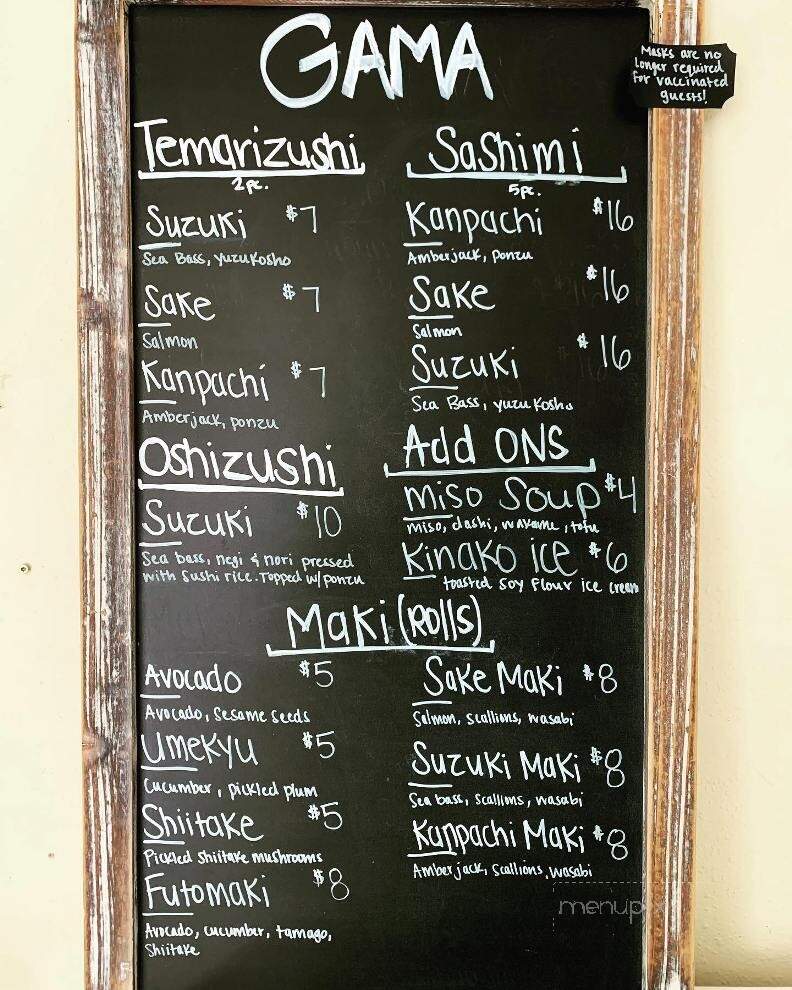 GAMA
Masks are no
longer required
for vaccinated
guests!
Temarizushi
2pc.
Suzuki $7
Sea Bass, yuzu kosho
Sake $7
Salmon
Kanpachi $7
Amberjack, ponzu
Oshizushi
Suzuki $10
Sea bass, negi & nori pressed
with sushi rice. Topped w/ponzu
Sashimi
5pc.
Kanpachi $16
Amberjack, ponzu
Sake $16
Salmon
Suzuki $16
Sea Bass, yuzu kosho
Add ONS
Miso Soup $4
miso, dashi, wakame, tofu
Kinako ice $6
toasted soy flour ice cream
Maki (Rolls)
Avocado $5
Avocado, sesame seeds
Umekyu $5
Cucumber, pickled plum
Shiitake $5
Pickled shiitake mushrooms
Futomaki $8
Avocado, cucumber, tamago,
Shiitake
Sake Maki $8
Salmon, scallions, wasabi
Suzuki Maki $8
Sea bass, scallions, wasabi
Kanpachi Maki $8
Amberjack, scallions, wasabi